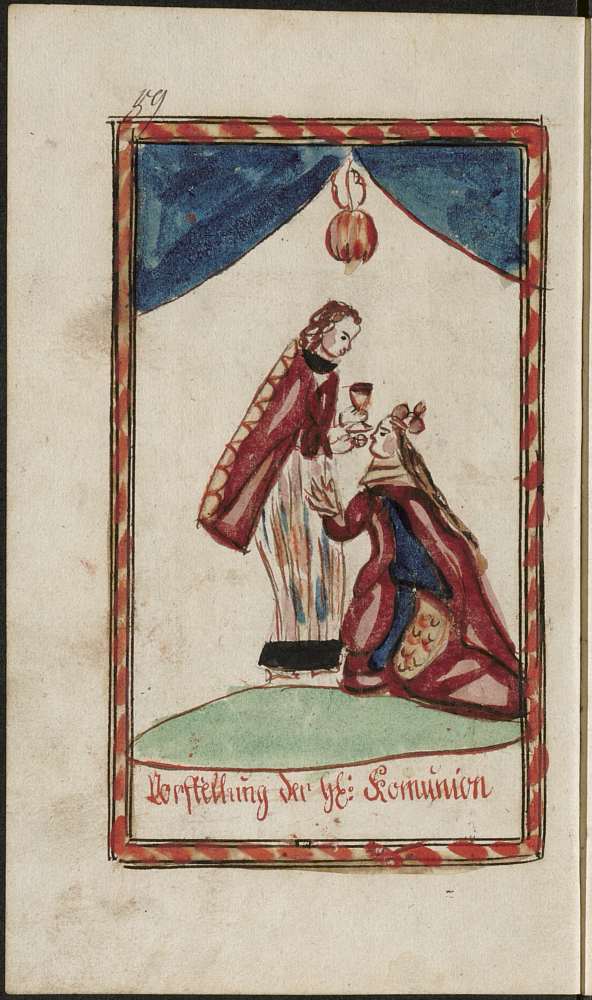 59
Vorstellung der hl: Komunion